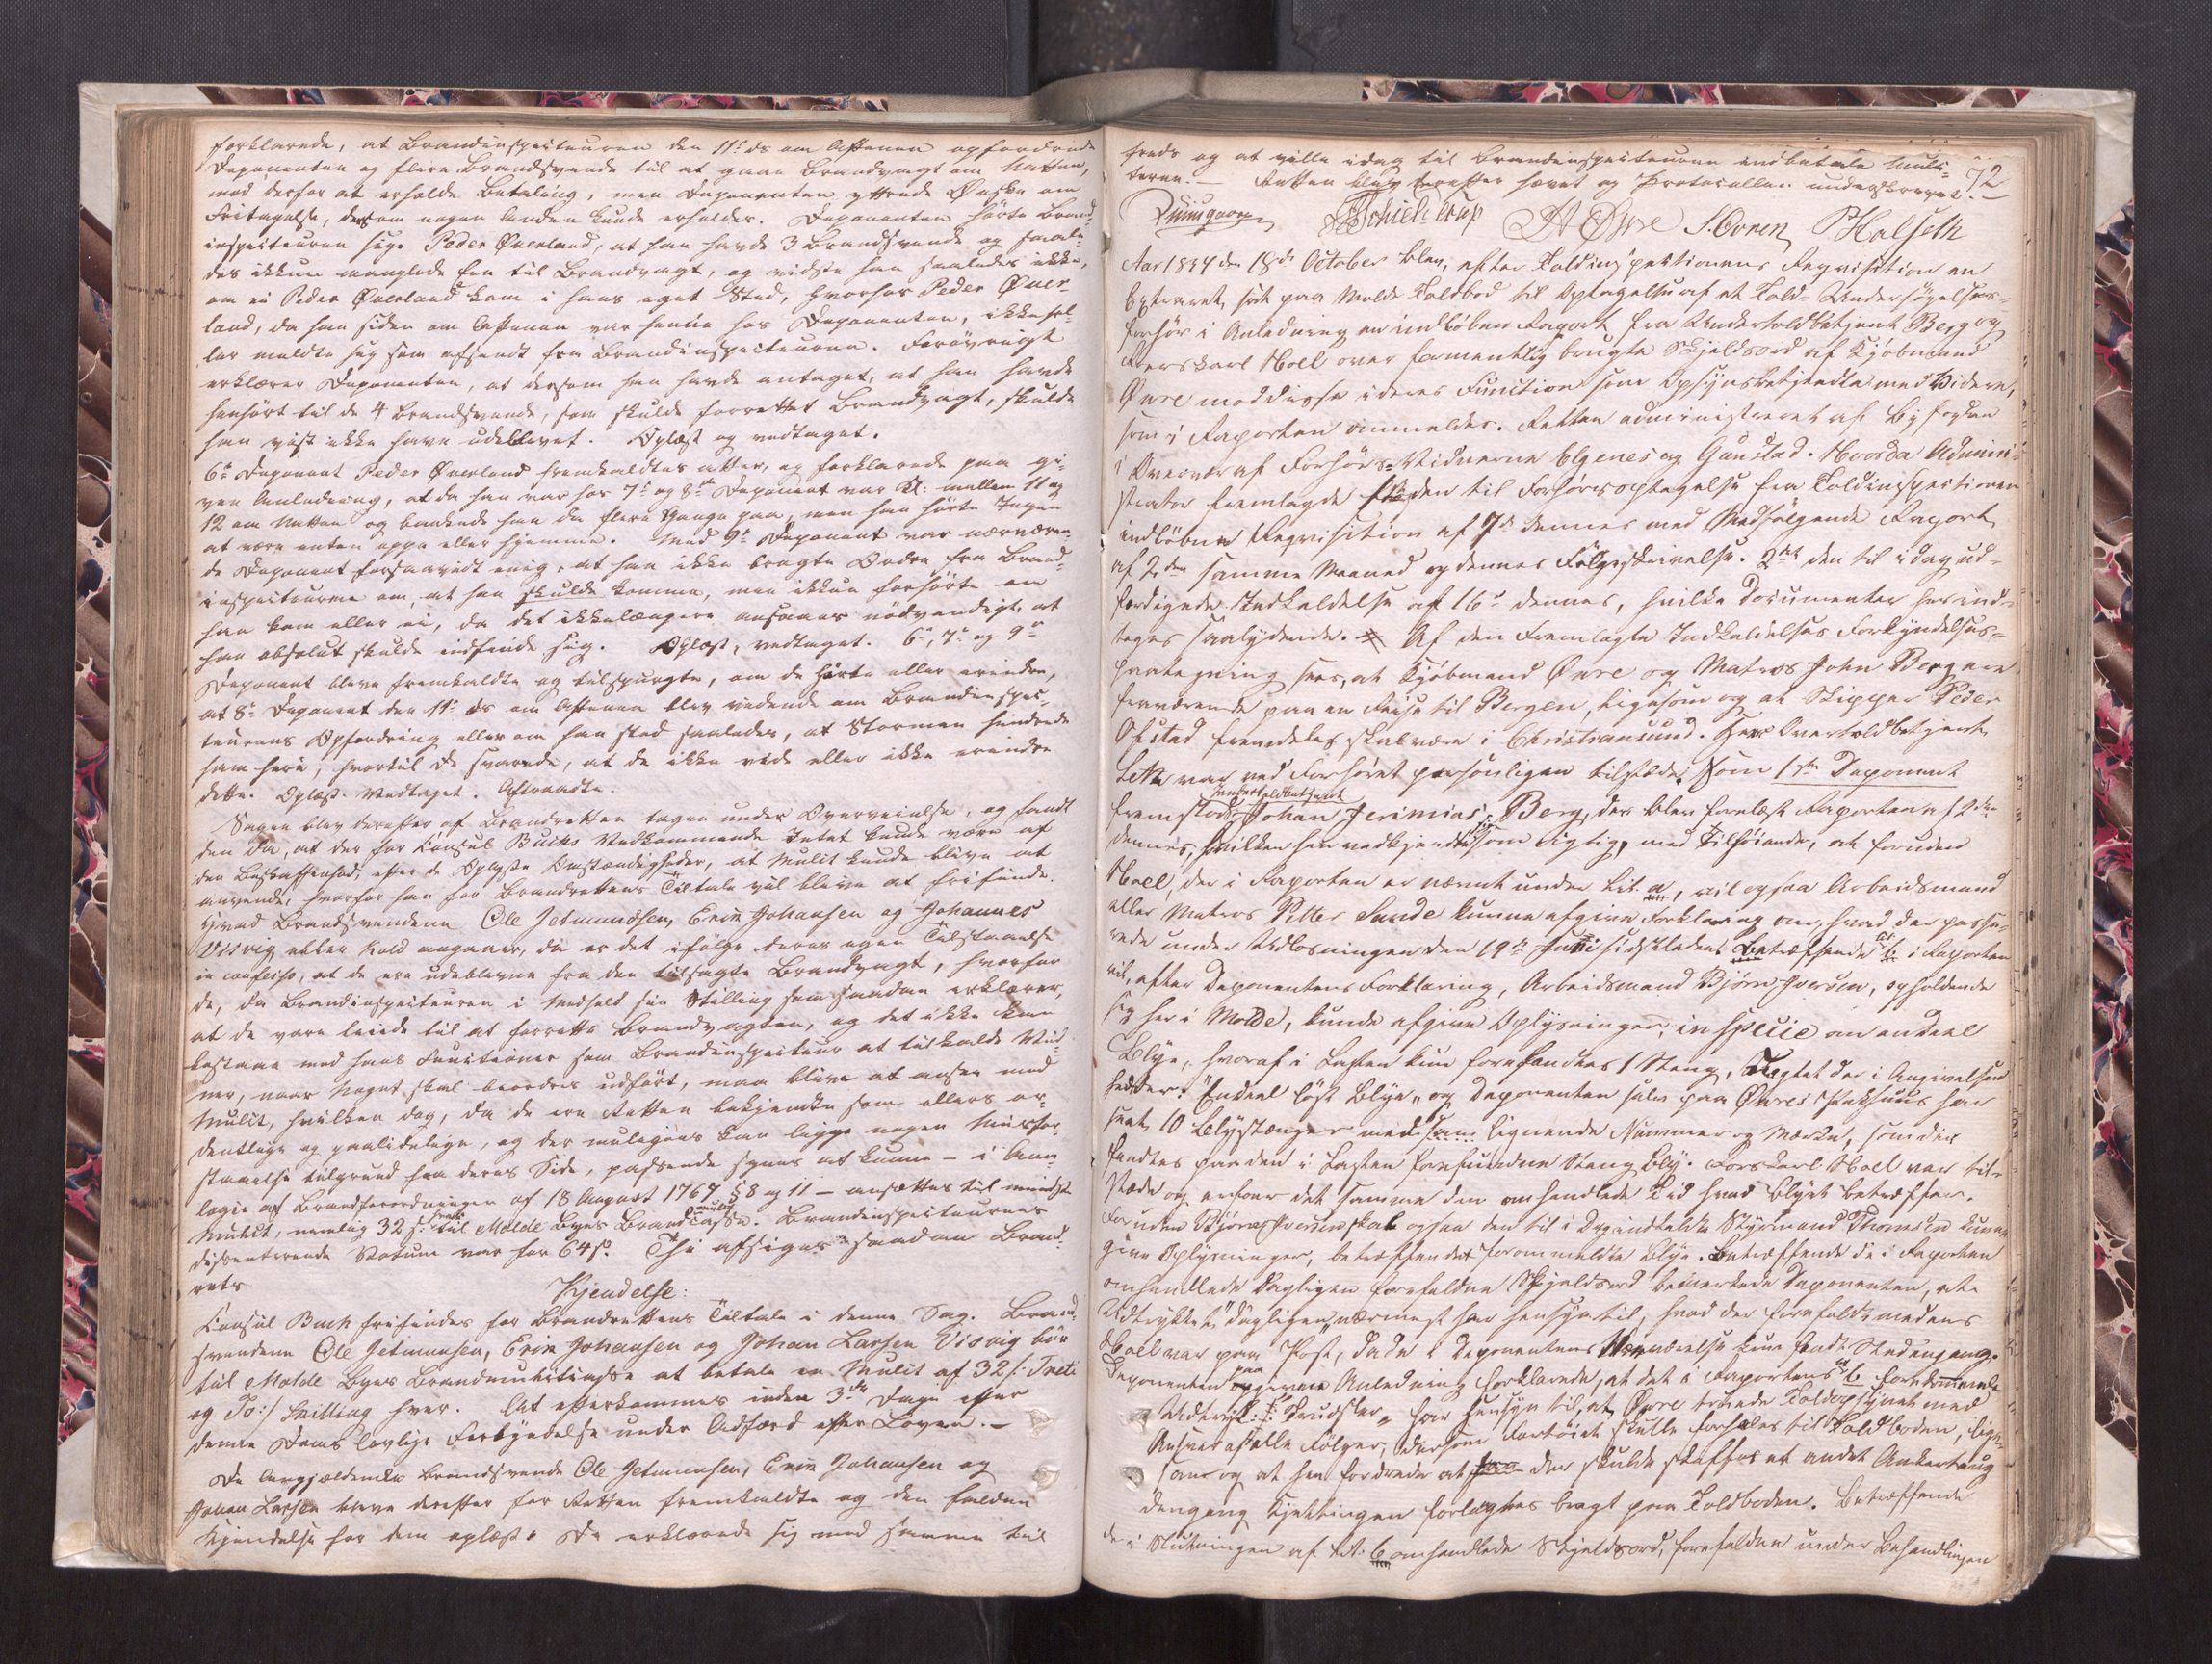 forklarede, at Brandinspecteuren den 11te ds om Aftenen opfordrede
Deponenten og flere Brandsvende til at gaae Brandvagt om Natten,
mod derfor at erholde Betaling, men Deponenten yttrede Ønske om
Fritagelse, dersom nogen anden kunde erholdes. Deponenten hørte Brand-
inspecteuren sige Peder Øverland, at han havde 3 Brandsvende og saale-
des ikkun manglede een til Brandvagt, og vidste han saaledes ikke,
om ei Peder Øverland kom i hans eget Sted, hvorhos Peder Øver-
land, da han siden om Aftenen var henne hos Deponenten, ikke hel-
ler meldte sig som afsendt fra Brandinspecteuren. Forøvrigt
erklærer Deponenten, at dersom han havde antaget, at han havde
henhørt til de 4 Brandsvende, som skulde forrettet Brandvagt, skulde
han vist ikke have udeblevet. Oplæst og vedtaget.
6te Deponent Peder Øverland fremkaldtes atter, og forklarede paa gi-
ven Anledning, at da han var hos 7de og 8de Deponent var Kl: mellem 11 og
12 om Natten og bankede han da flere Gange paa, men han hørte Ingen
at være enten oppe eller hjemme. Med 9de Deponent var nærværen-
de Deponent forsaavidt enig, at han ikke bragte Ordre fra Brand-
inspecteuren om, at han skulde komme, men ikkun forhørte om
han kom eller ei, da det ikke længere ansaaes nødvendigt, at
han absolut skulde indfinde sig. Oplæst, vedtaget. 6te, 7de og 9de
Deponent bleve fremkaldte og tilspurgte, om de hørte eller erindre,
at 8de Deponent den 11te ds om Aftenen blev vidende om Brandinspec-
teurens Opfordring eller om han stod saaledes, at Stormen hindrede
ham heri, hvortil de svarede, at de ikke vide eller ikke erindre
dette. Oplæst. Vedtaget. Aftraadte.
Sagen blev derefter af Brandretten tagen under Overveielse, og fandt
den da, at der for Consul Buchs Vedkommende Intet kunde være af
den Beskaffenhed, efter de Oplyste Omstændigheder, at Mulct kunde blive at
anvende, hvorfor han for Brandrettens Tiltale vil blive at frifinde.
Hvad Brandsvendene Ole Jetmundsen, Erik Johansen og Johannes
Visvig eller Kold angaaer, da er det ifølge deres egen Tilstaaelse
in confesso, at de ere udeblevne fra den tilsagte Brandvagt, hvorfor
de, da Brandinspecteuren i Medhold sin Stilling som saadan erklærer,
at de vare leiede til at forrette Brandvagten, og det ikke kan
bestaae med hans Functioner som Brandinspecteur at tilkalde Vid-
ner, naar Noget skal beordres udført, maa blive at ansee med
Mulct, hvilken dog, da de ere Retten bekjendte som ellers or-
dentlige og paalidelige, og der muligens kan ligge nogen Misfor-
staaelse tilgrund fra deres Side, passende synes at kunne – i Ana-
logie af Brandforordningen af 18 August 1767 §8 og 11 – ansættes til mindste
Mulct, nemlig 32 s. hver til Molde Byes Brandmulctcasse. Brandinspecteurens
dissenterende Votum var for 64 s. Thi afsiges saadan Brand-
rets
Kjendelse:
Consul Buch frifindes for Brandrettens Tiltale i denne Sag. Brand-
svendene Ole Jetmunsen, Erik Johansen og Johan Larsen Visvig bør
til Molde Byes Brandmulctcasse at betale en Mulct af 32 /: Treti
og To :/ Skilling hver. At efterkommes inden 3de Dage efter
denne Doms lovlige Forkyndelse under Adfærd efter Loven. –
De Angjældende Brandsvende Ole Jetmunsen, Erik Johansen og
Johan Larsen bleve derefter for Retten fremkaldte og den faldne
Kjendelse for dem oplæst. De erklærede sig med samme til
freds og at ville idag til Brandinspecteuren indbetale Mulc-
terne. – Retten blev derefter hævet og Protocollen underskrevet. – 72
Schielderup A Øvre S. Owren P Halseth
Aar 1834 den 18de October blev, efter Toldinspectionens Requisition en
Extraret sat paa Molde Toldbod til Optagelse af et Told-Undersøgelses-
forhør i Anledning en indløben Raport fra Undertoldbetjent Berg og
Roerskarl Noel over formentlig brugte Skjeldsord af Kjøbmand
Øvre mod disse i deres Function som Opsynsbetjendte med Videre,
som i Raporten anmeldes. Retten administreret af Byfogden
i Overvær af Forhørs-Vidnerne Elgenes og Gunstad. Hvorda Admini-
strator fremlagde den til Forhørsoptagelse fra Toldinspectionen
indløbne Requisition af 7de dennes med Medfølgende Raport
af 2den samme Maaned og dennes Følgeskrivelse. 2det den til idag ud-
færdigede Indkaldelse af 16de dennes, hvilke Documenter her ind-
tages saalydende. Af den fremlagte Indkaldelses Forkyndelses-
paategning sees, at Kjøbmand Øvre og Matros John Berg ere
fraværende paa en Reise til Bergen, ligesom og at Skipper Peder
Ofstad fremdeles skal være i Christiansund. Herr Overtoldbetjent
Lek var ved Forhøret personligen tilstæde. Som 1ste Deponent
fremstod Undertoldbetjent Johan Jerimias Berg, der blev forelæst Raporten af 2den
dennes, hvilken han vedkjendte sig som rigtig, med Tilføiende, at foruden
Noel, der i Raporten er nævnt under Lit. a, vil ogsaa Arbeidsmand
eller Matros Petter Sunde kunne afgive Forklaring om, hvad der passe-
rede under Udlosningen den 19de Juni sidstleden. Betræffende Lit b i Raporten
vil, efter Deponentens Forklaring, Arbeidsmand Bjørn Iversen, opholdende
sig her i Molde, kunde afgive Oplysninger, in specie om en deel
Blye, hvoraf i Lasten kun forefandtes 1 Stang, Uagtet der i Angivelsen
hedder: "Endeel løst Blye" og Deponenten selv paa Øvres Pakhuus har
seet 10 Blystænger med samme lignende Nummer og Mærke, som der
fandtes paa den i Lasten forefundne Stang Bly. Roerskarl Noel var til-
stæde og erfoer det samme den omhandlede Tid hvad Blyet betræffer.
Foruden Bjørn Iversen skal ogsaa den til i Dag indkaldte Styrmand Thomsen kunne
give Oplysninger, betræffende forommeldte Blye. Betræffende de i Raporten
omhandlede dagligen forefaldne Skjeldsord bemærkede Deponenten, at
Udtrykket "dagligen" nærmest har Hensyn til, hvad der forefaldt medens
Noel var paa Post, da de i Deponentens Nærværelse kun fandt Sted engang.
Deponenten paa given Anledning forklarede, at det i Raportens Lit b forekommende
Udtryk: "Trudsler" har Hensyn til, at Øvre truede Toldopsynet med
Ansvar af alle Følger, dersom Fartøiet skulle forhales til Toldboden, lige-
som og at han fordrede at der skulde skaffes et andet Ankertoug
dengang Kjettingen forlangtes bragt paa Toldboden. Betræffende
de i Slutningen af Lit: b omhandlede Skjeldsord, forefaldne under Behandlingen